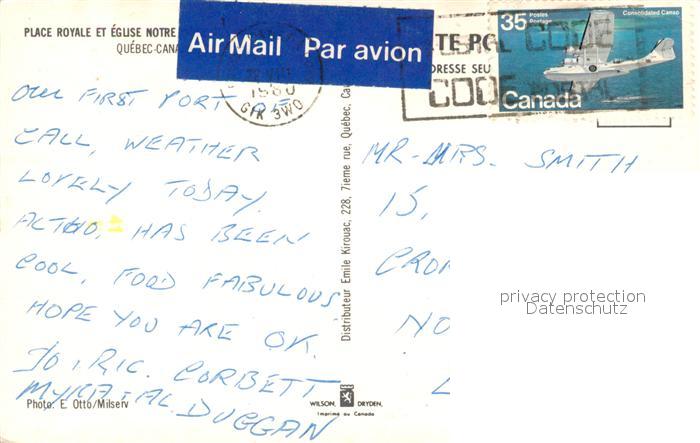 PLACE ROYALE ET ÉGLISE NOTRE
QUÉBEC-CANA
Air Mail Par avion
1980
G1K 3W0
POSTAL CODE
CODE POSTAL
DRESSE SEU
35 Postes Postage
Consolidated Canso
Canada
OUR FIRST PORT OF
CALL, WEATHER
LOVELY TODAY.
ALTHO, HAS BEEN
COOL, FOOD FABULOUS
HOPE YOU ARE OK.
JO & RIC. CORBETT
MYRA & AL. DUGGAN
Photo: E. Otto/Milserv
Distributeur Emile Kirouac, 228, 7ieme rue, Québec, Ca
WILSON DRYDEN.
Imprimé au Canada
MR-MRS. SMITH
15,
CRO
NO
L
privacy protection
Datenschutz